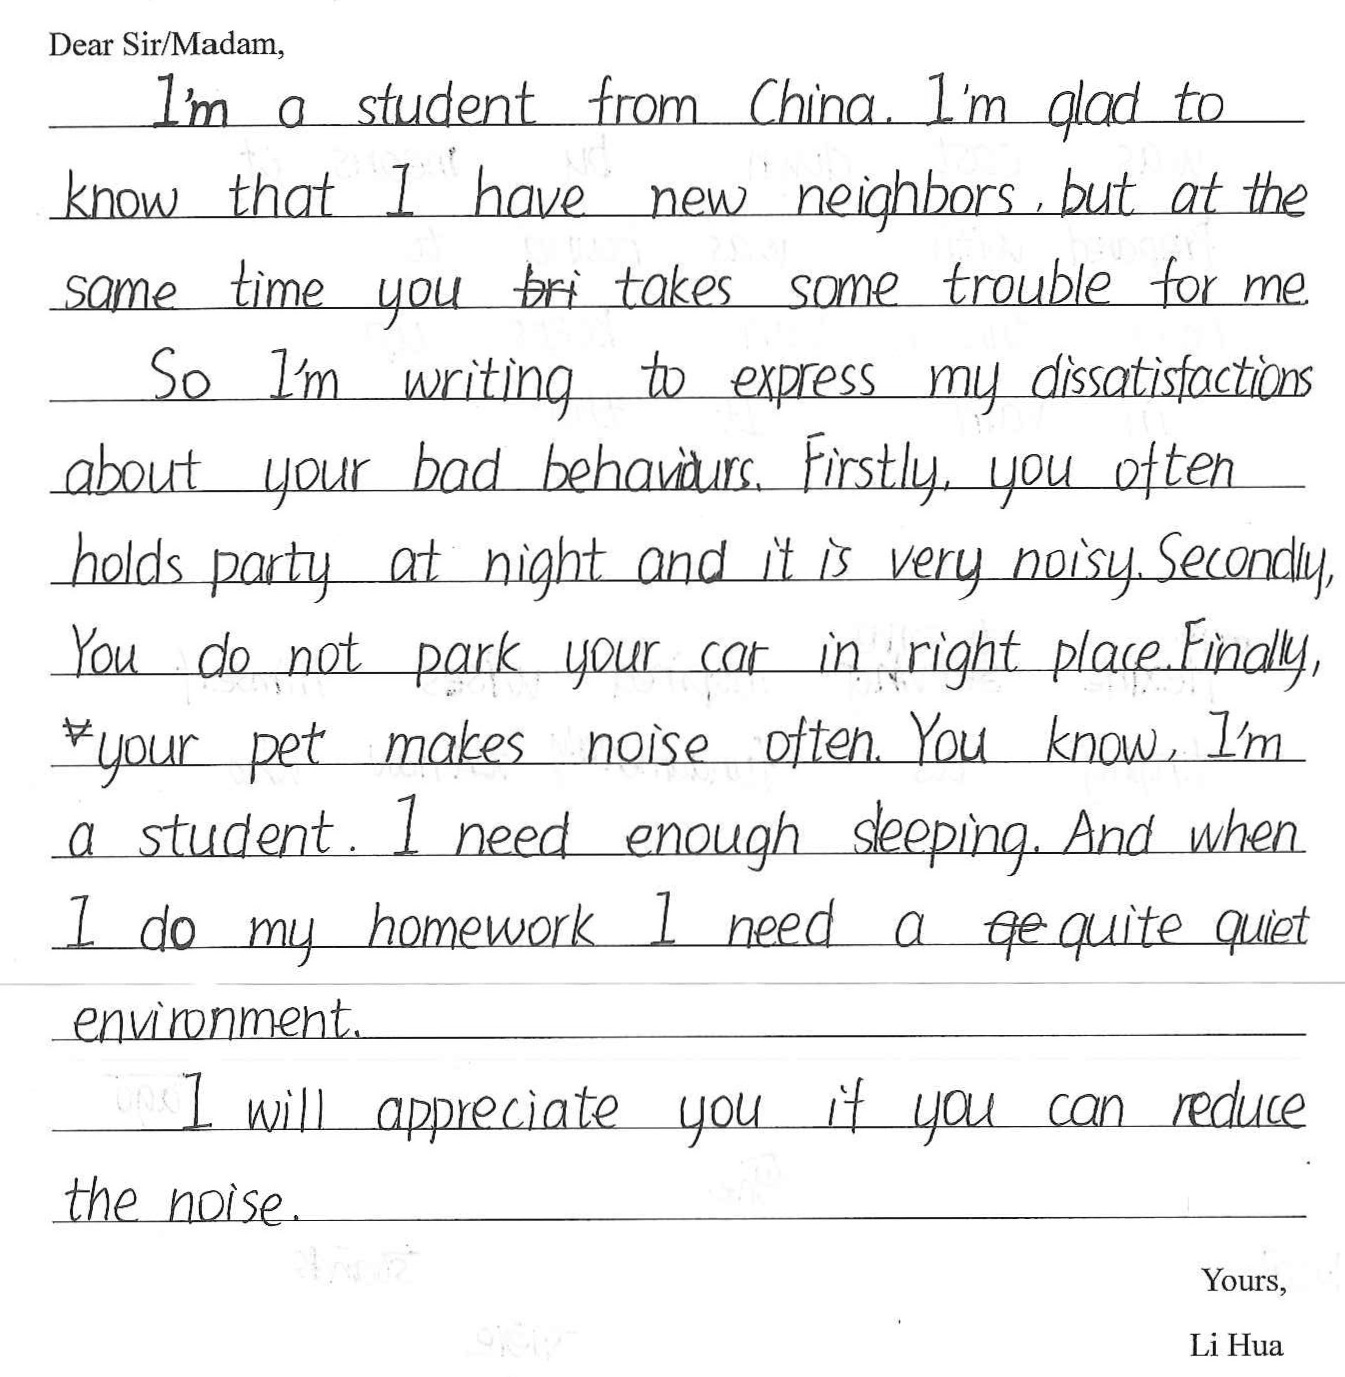 Dear Sir/Madam,
I'm a student from China. I'm glad to
know that I have new neighbors, but at the
same time you bri takes some trouble for me.
So I'm writing to express my dissatisfactions
about your bad behaviours. Firstly, you often
holds party at night and it is very noisy. Secondly,
You do not park your car in right place. Finally,
your pet makes noise often. You know, I'm
a student. I need enough sleeping. And when
I do my homework I need a qe quite quiet
environment.
I will appreciate you if you can reduce
the noise.
Yours,
Li Hua